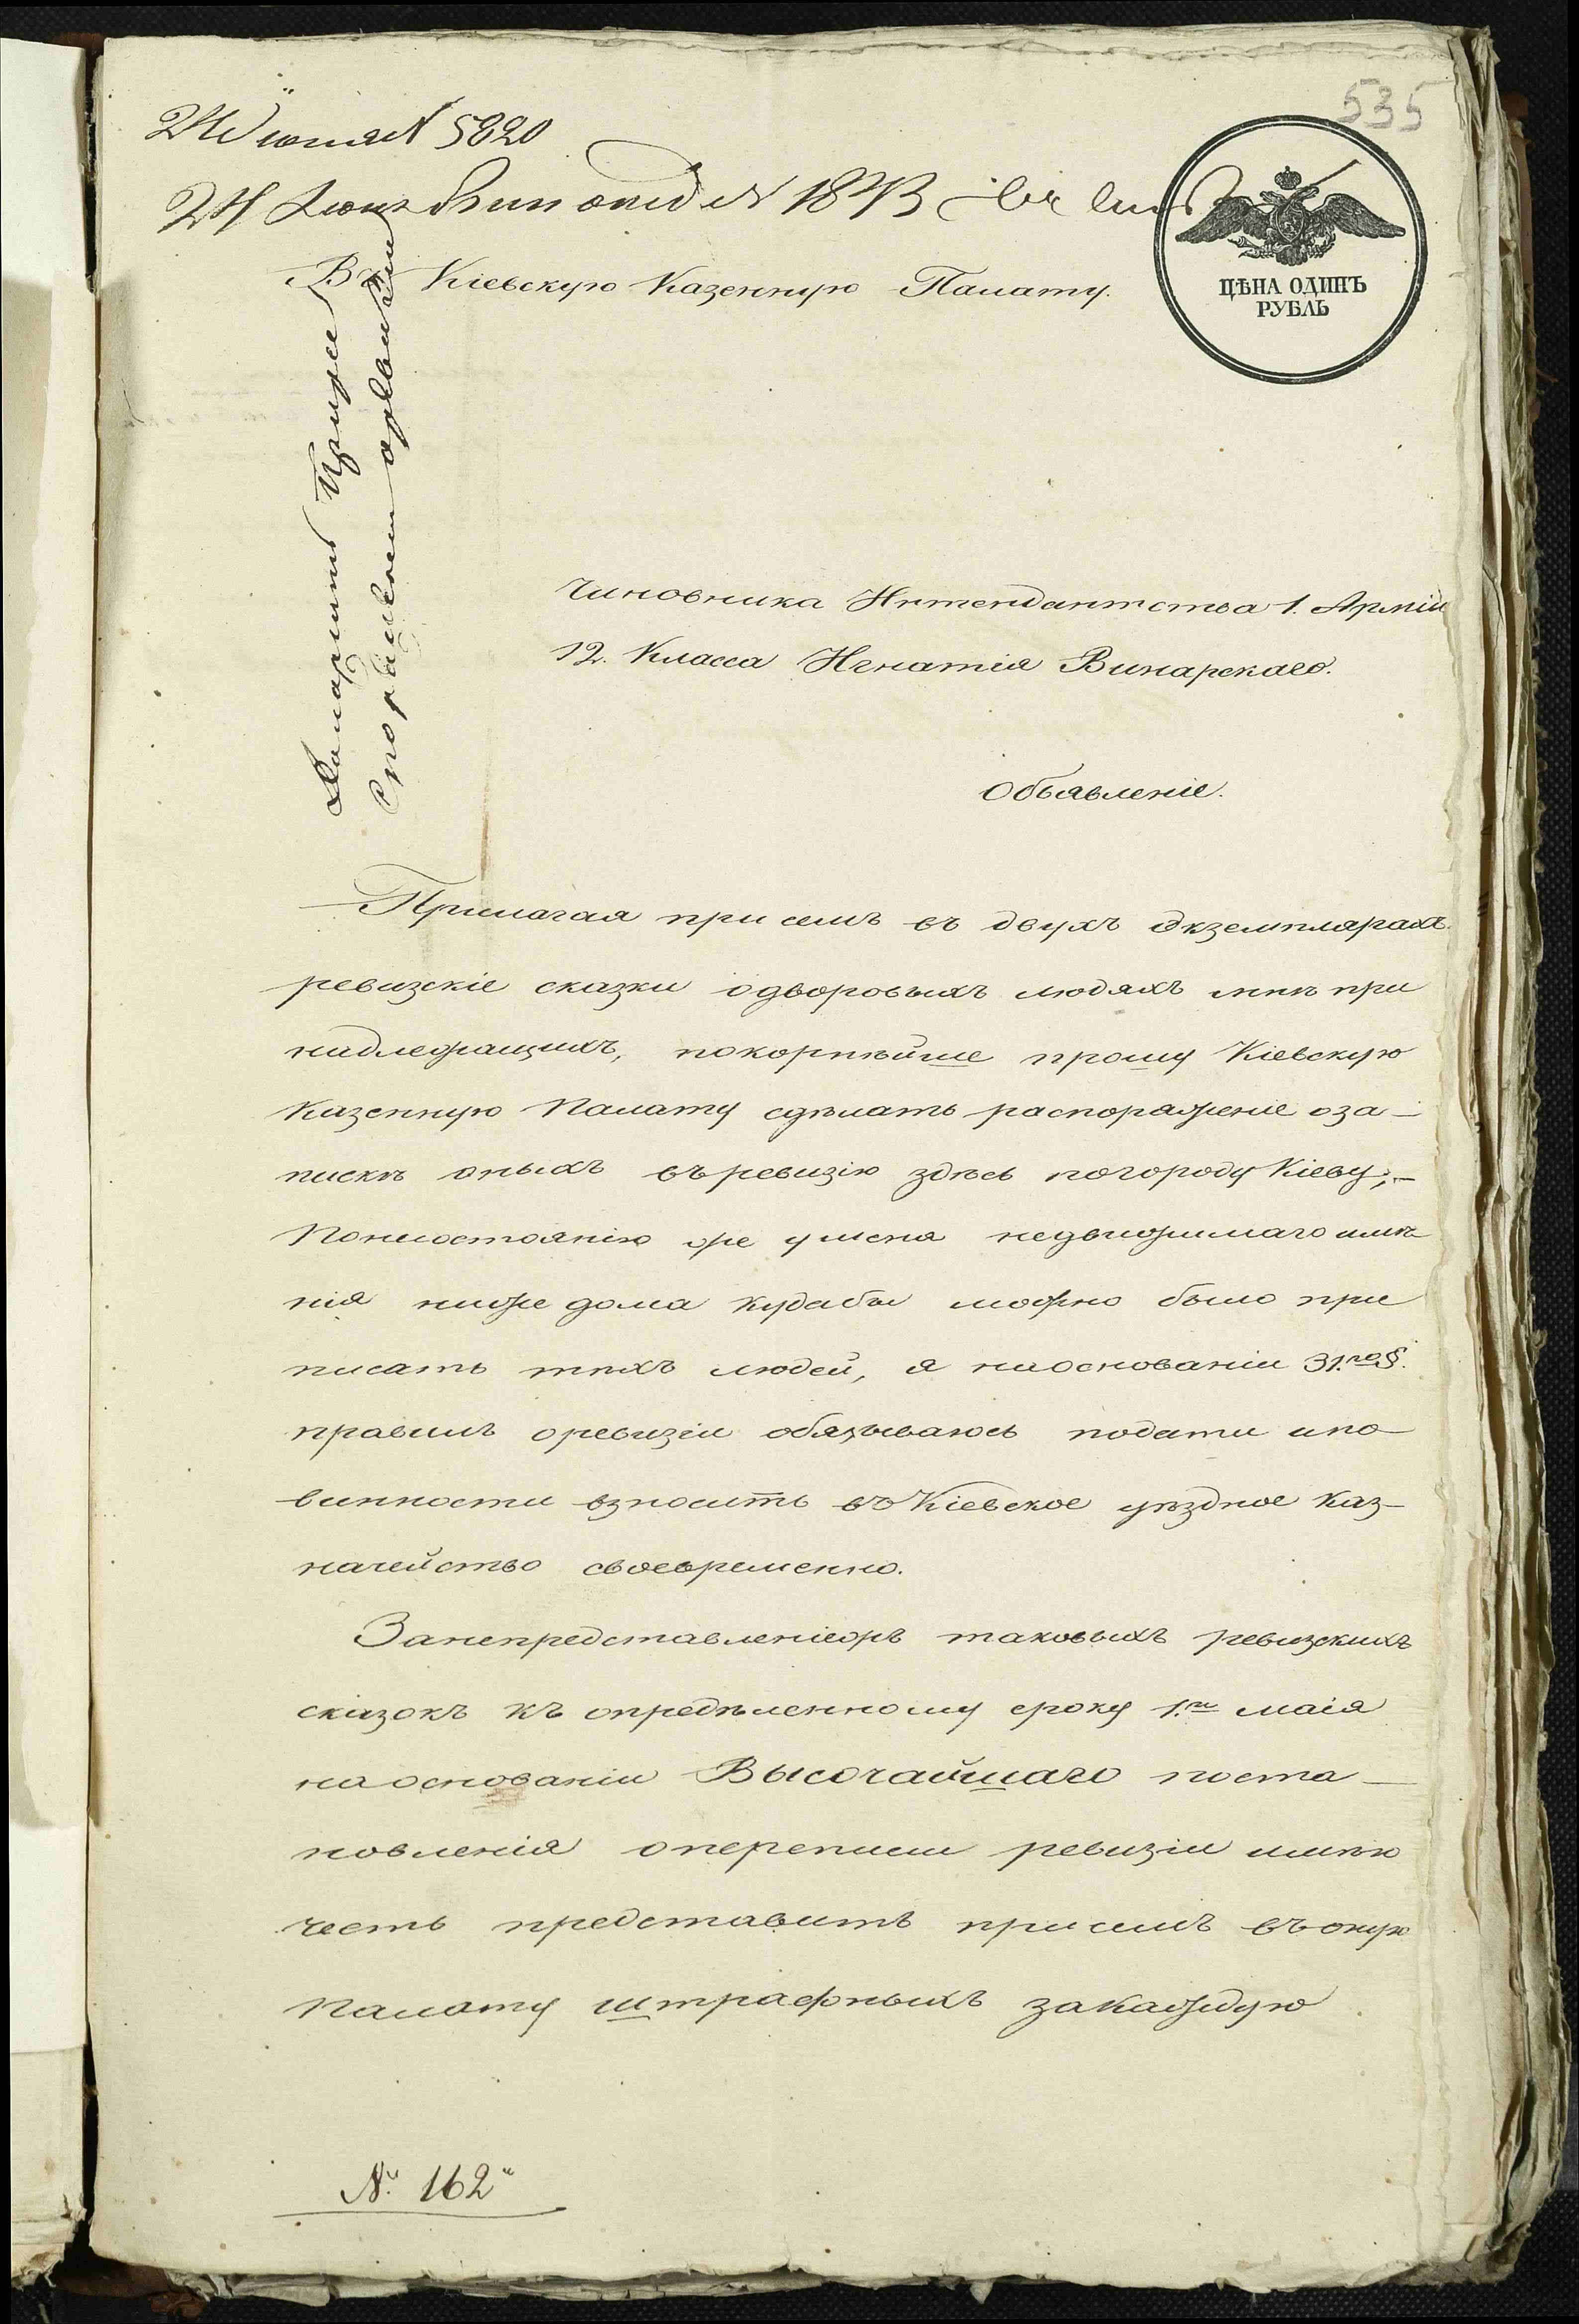 535
24 іюня № 5820
24 № 1843
ЦѢНА ОДИНЪ
РУБЛЬ
Въ Кіевскую Казенную Палату.
Чиновника Интендантства 1. Арміи
12. Класса Игнатія Винарскаго.
Объявленіе.
Прилагая при семъ въ двухъ экземплярахъ
ревизскіе сказки одворовыхъ людяхъ мнѣ при
надлежащихъ, покорнѣйше прошу Кіевскую
Казенную Палату сдѣлать распоряженіе оза-
пискѣ оныхъ въревизію здѣсь погороду Кіеву;-
Понесостоянію же уменя недвижимаго имѣ
нія ниже дома кудабы можно было при
писать тѣхъ людей, я наоснованіи 31.го §.
правилъ оревизіи обязываюсь подати ипо-
винности взносить въ Кіевское уѣздное Каз-
начейство своевременно.
Занепредставленіемъ таковыхъ ревизскихъ
сказокъ къ опредѣленному сроку 1.го маія
наоснованіи Высочайшаго поста-
новленія опереписи ревизіи имѣю
честь представить присемъ въоную
Палату штрафныхъ закаждую
№ 162